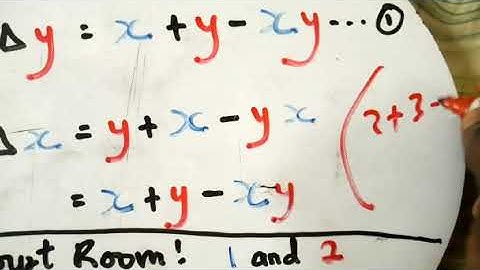 Δ y = x + y - xy ... ①
Δ x = y + x - y x
(2+3-
= x + y - xy
Room! 1 and 2